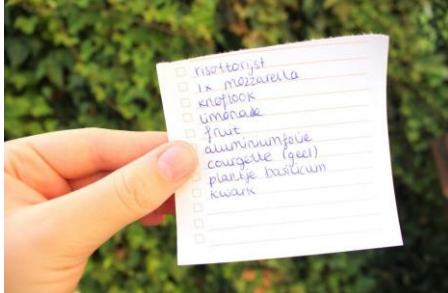 risottorijst
1x mozzarella
knoflook
limonade
fruit
aluminiumfolie
courgette (geel)
plantje basilicum
kwark